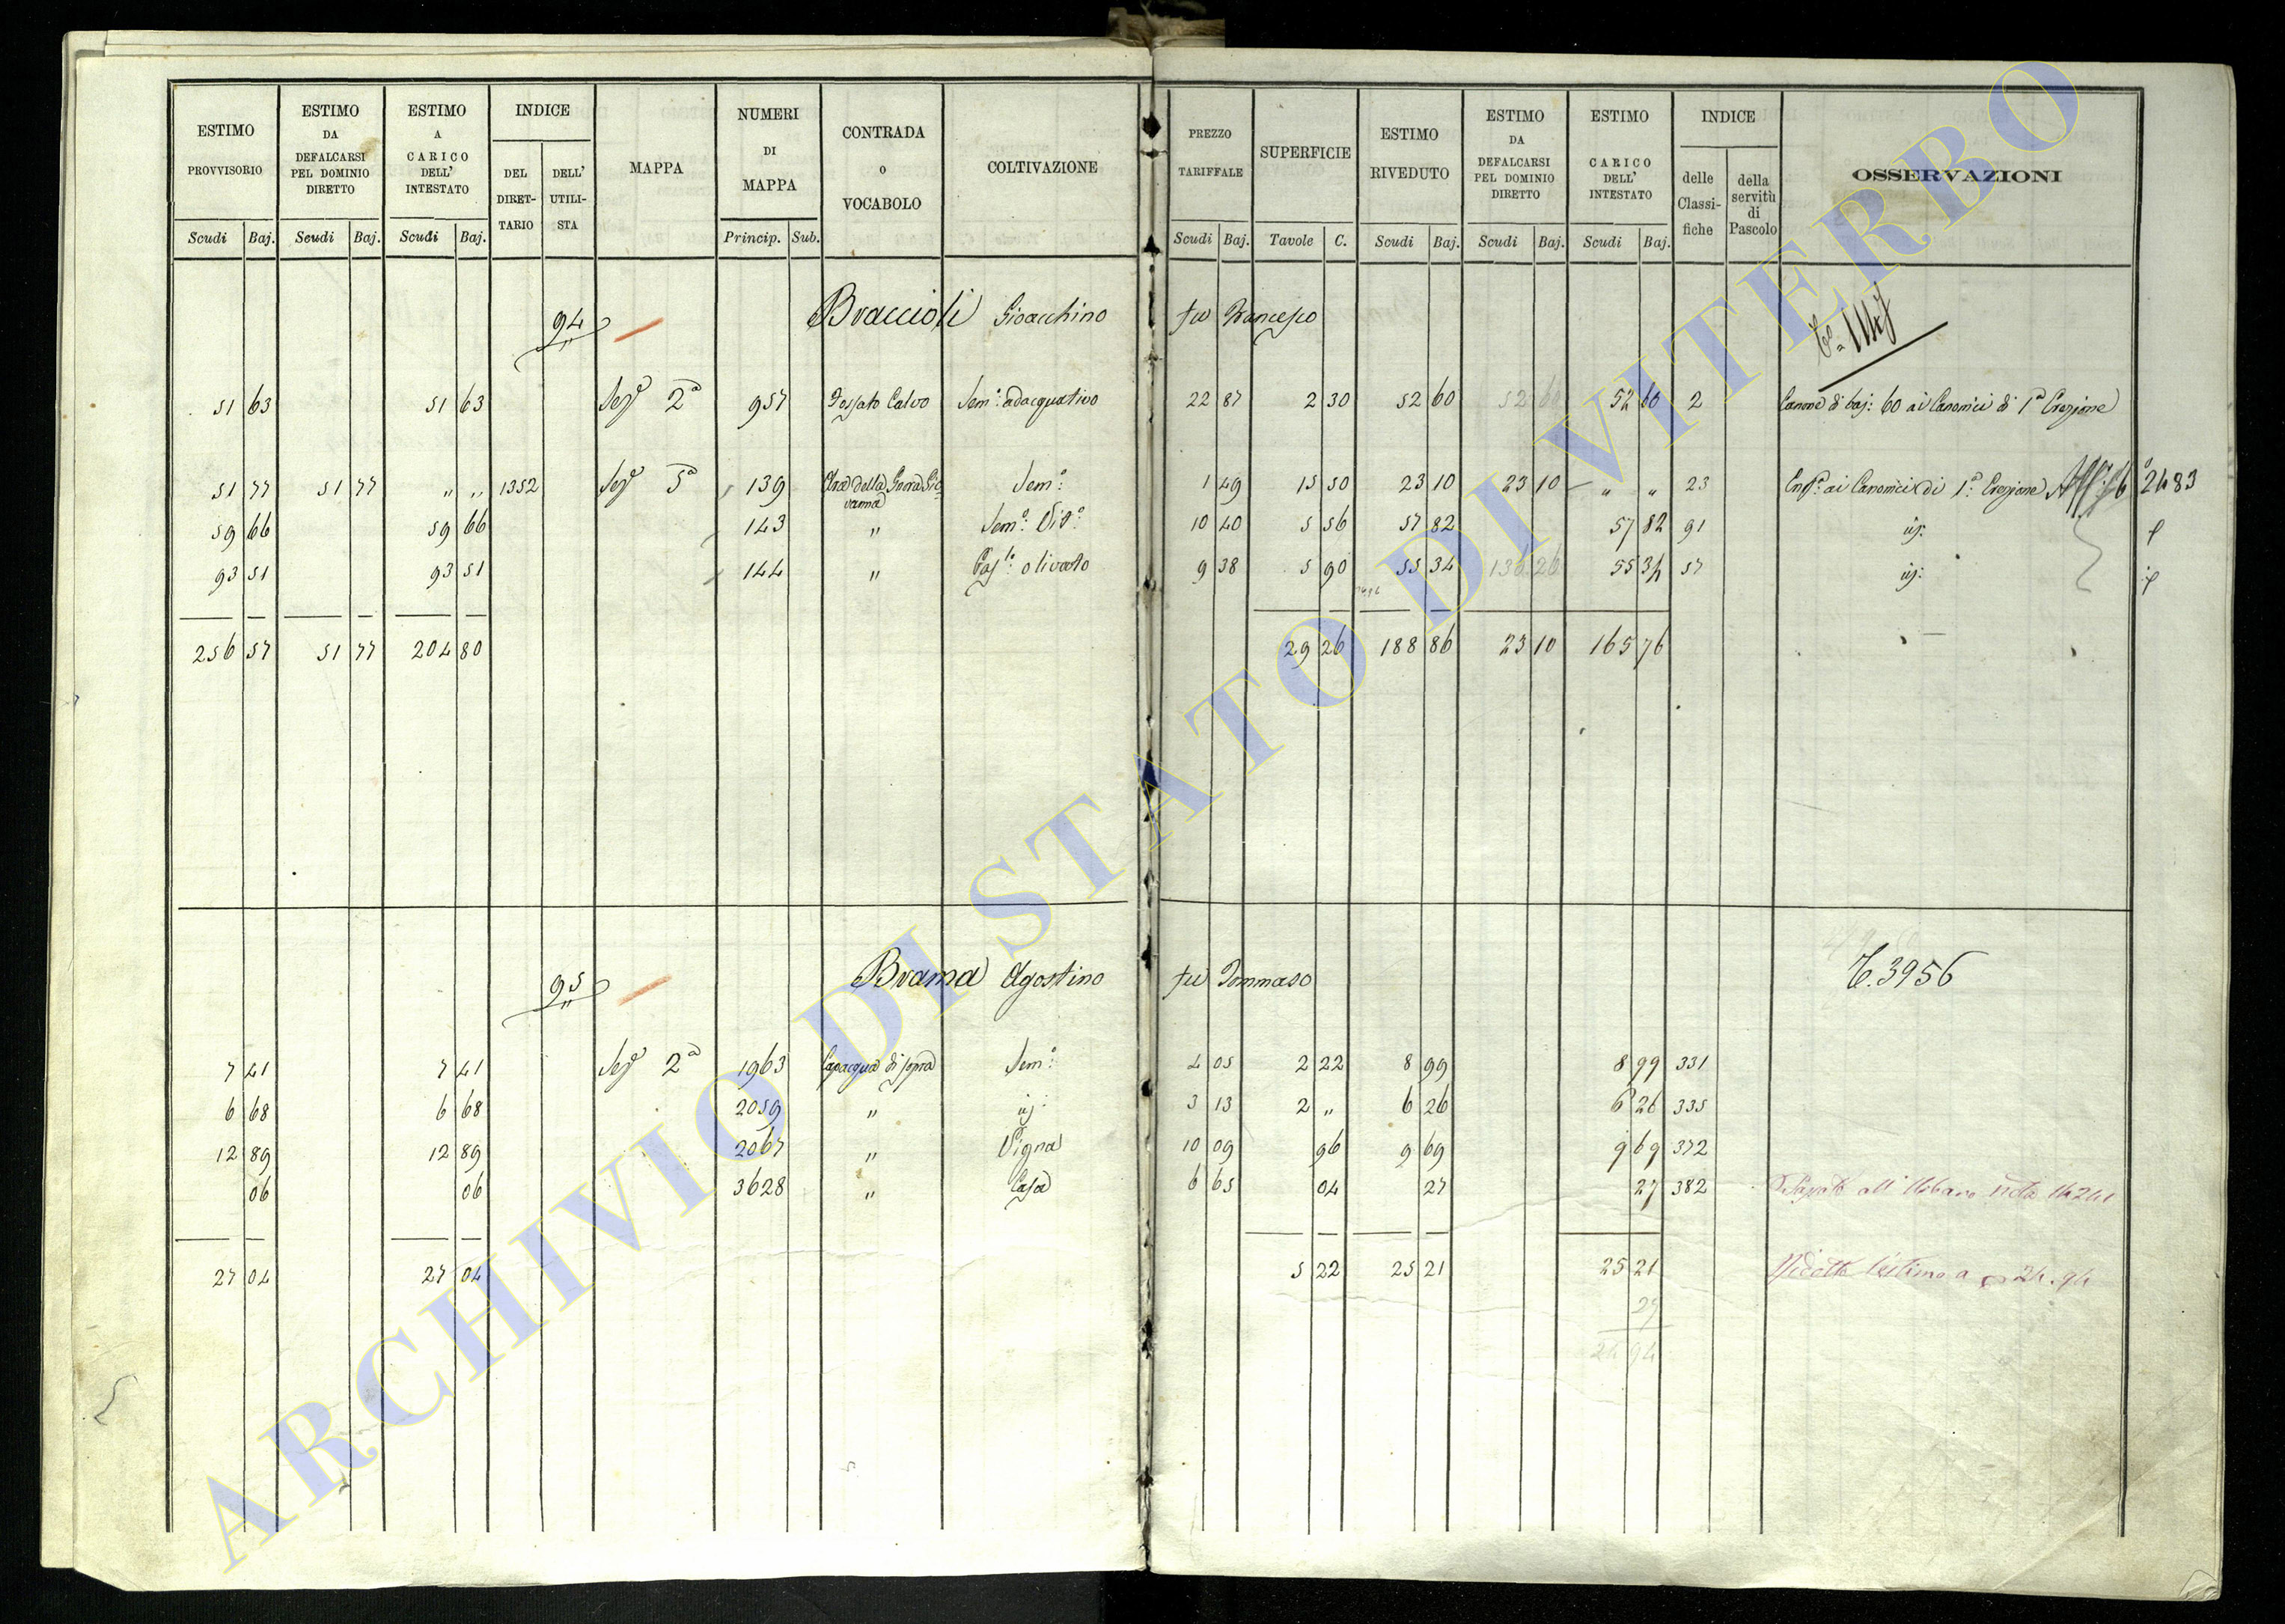 ESTIMO PROVVISORIO | ESTIMO DA DEFALCARSI PEL DOMINIO DIRETTO | ESTIMO A CARICO DELL' INTESTATO | INDICE DEL DIRET-TARIO | DELL' UTILI-STA | MAPPA | NUMERI DI MAPPA | CONTRADA o VOCABOLO | COLTIVAZIONE | PREZZO TARIFFALE | SUPERFICIE | ESTIMO RIVEDUTO | ESTIMO DA DEFALCARSI PEL DOMINIO DIRETTO | ESTIMO A CARICO DELL' INTESTATO | INDICE delle Classi-fiche | della servitù di Pascolo | OSSERVAZIONI
Scudi Baj. | Scudi Baj. | Scudi Baj. | Princip. Sub. | Scudi Baj. | Tavole C. | Scudi Baj. | Scudi Baj. | Scudi Baj.
94 Braccioli Gioacchino fu Francesco
51 63 | 51 63 | Sez 2a | 957 | Fossato Calvo | Sem: adacquativo | 22 87 | 2 30 | 52 60 | 52 60 | 52 60 | 2 | Canone di baj: 60 ai Canonici di 1a Erezione
51 77 | 51 77 | " " | 1352 | Sez 5a | 139 | della Giovanna | Sem: | 1 49 | 15 50 | 23 10 | 23 10 | " " | 23 | Enf: ai Canonici di 1a: Erezione 2483
59 66 | 59 66 | 143 | " | Sem: Vit: | 10 40 | 5 56 | 57 82 | 57 82 | 91 | id:
93 51 | 93 51 | 144 | " | Pas: olivato | 9 38 | 5 90 | 55 34 | 130 26 | 55 34 | 57 | id:
256 57 | 51 77 | 204 80 | 29 26 | 188 86 | 23 10 | 165 76
95 Brama Agostino fu Tommaso T. 3956
7 41 | 7 41 | Sez 2a | 1963 | Capacqua di sopra | Sem: | 4 05 | 2 22 | 8 99 | 8 99 | 331
6 68 | 6 68 | 2059 | " | id: | 3 13 | 2 " | 6 26 | 6 26 | 335
12 89 | 12 89 | 2067 | " | Vigna | 10 09 | 96 | 9 69 | 9 69 | 372
06 | 06 | 3628 | " | Casa | 6 65 | 04 | 27 | 27 | 382 | Passato all'Urbano
27 04 | 27 04 | 5 22 | 25 21 | 25 21 | Ridotto l'estimo a 24.94
27
24 94
ARCHIVIO DI STATO DI VITERBO